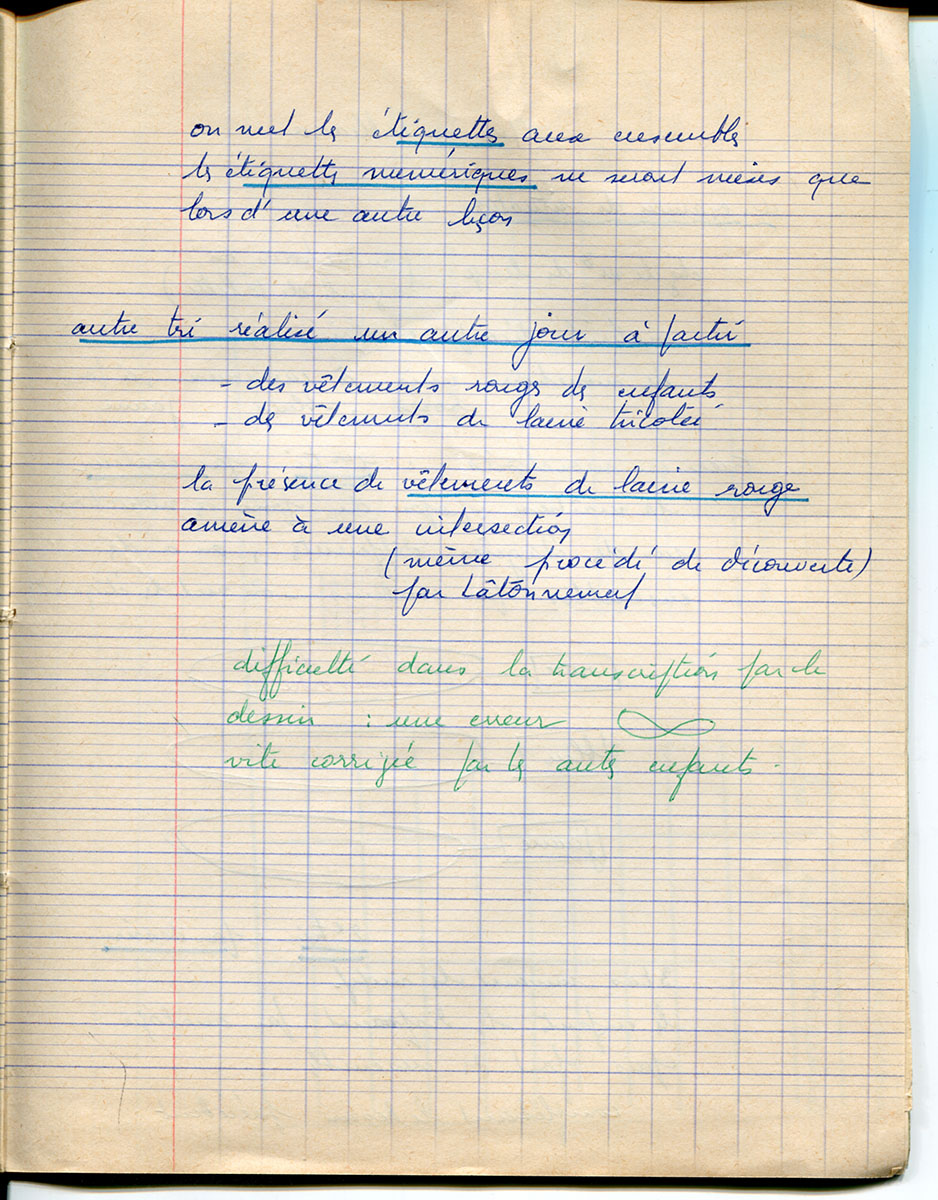 on met les étiquettes aux ensembles
les étiquettes numériques ne seront mises que
lors d'une autre leçon
autre tri réalisé un autre jour à partir
- des vêtements rouges des enfants
- des vêtements de laine tricotée
la présence de vêtements de laine rouge
amène à une intersection
(même procédé de découverte)
par tâtonnement
difficulté dans la transcription par le
dessin : une erreur
vite corrigée par les autres enfants.